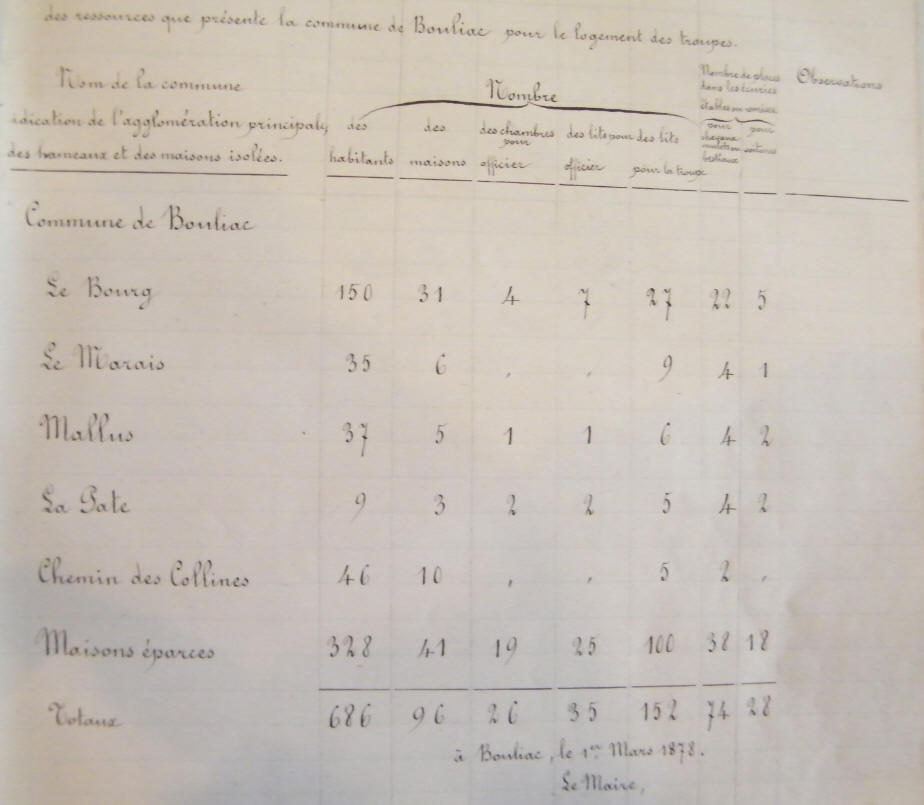 des ressources que présente la commune de Bouliac pour le logement des troupes.
Nom de la commune
dication de l'agglomération principale,
des hameaux et des maisons isolées.
Nombre
des habitants
des maisons
des chambres pour officier
des lits pour officier
des lits pour la troupe
Nombre de places dans les écuries étables ou remises
pour chevaux mulets ou bestiaux
pour voitures
Observations
Commune de Bouliac
Le Bourg 150 31 4 7 27 22 5
Le Marais 35 6 , , 9 4 1
Mallus 37 5 1 1 6 4 2
La Pate 9 3 2 2 5 4 2
Chemin des Collines 46 10 , , 5 2 ,
Maisons éparces 328 41 19 25 100 38 18
Totaux 686 96 26 35 152 74 28
à Bouliac, le 1er Mars 1878.
Le Maire,